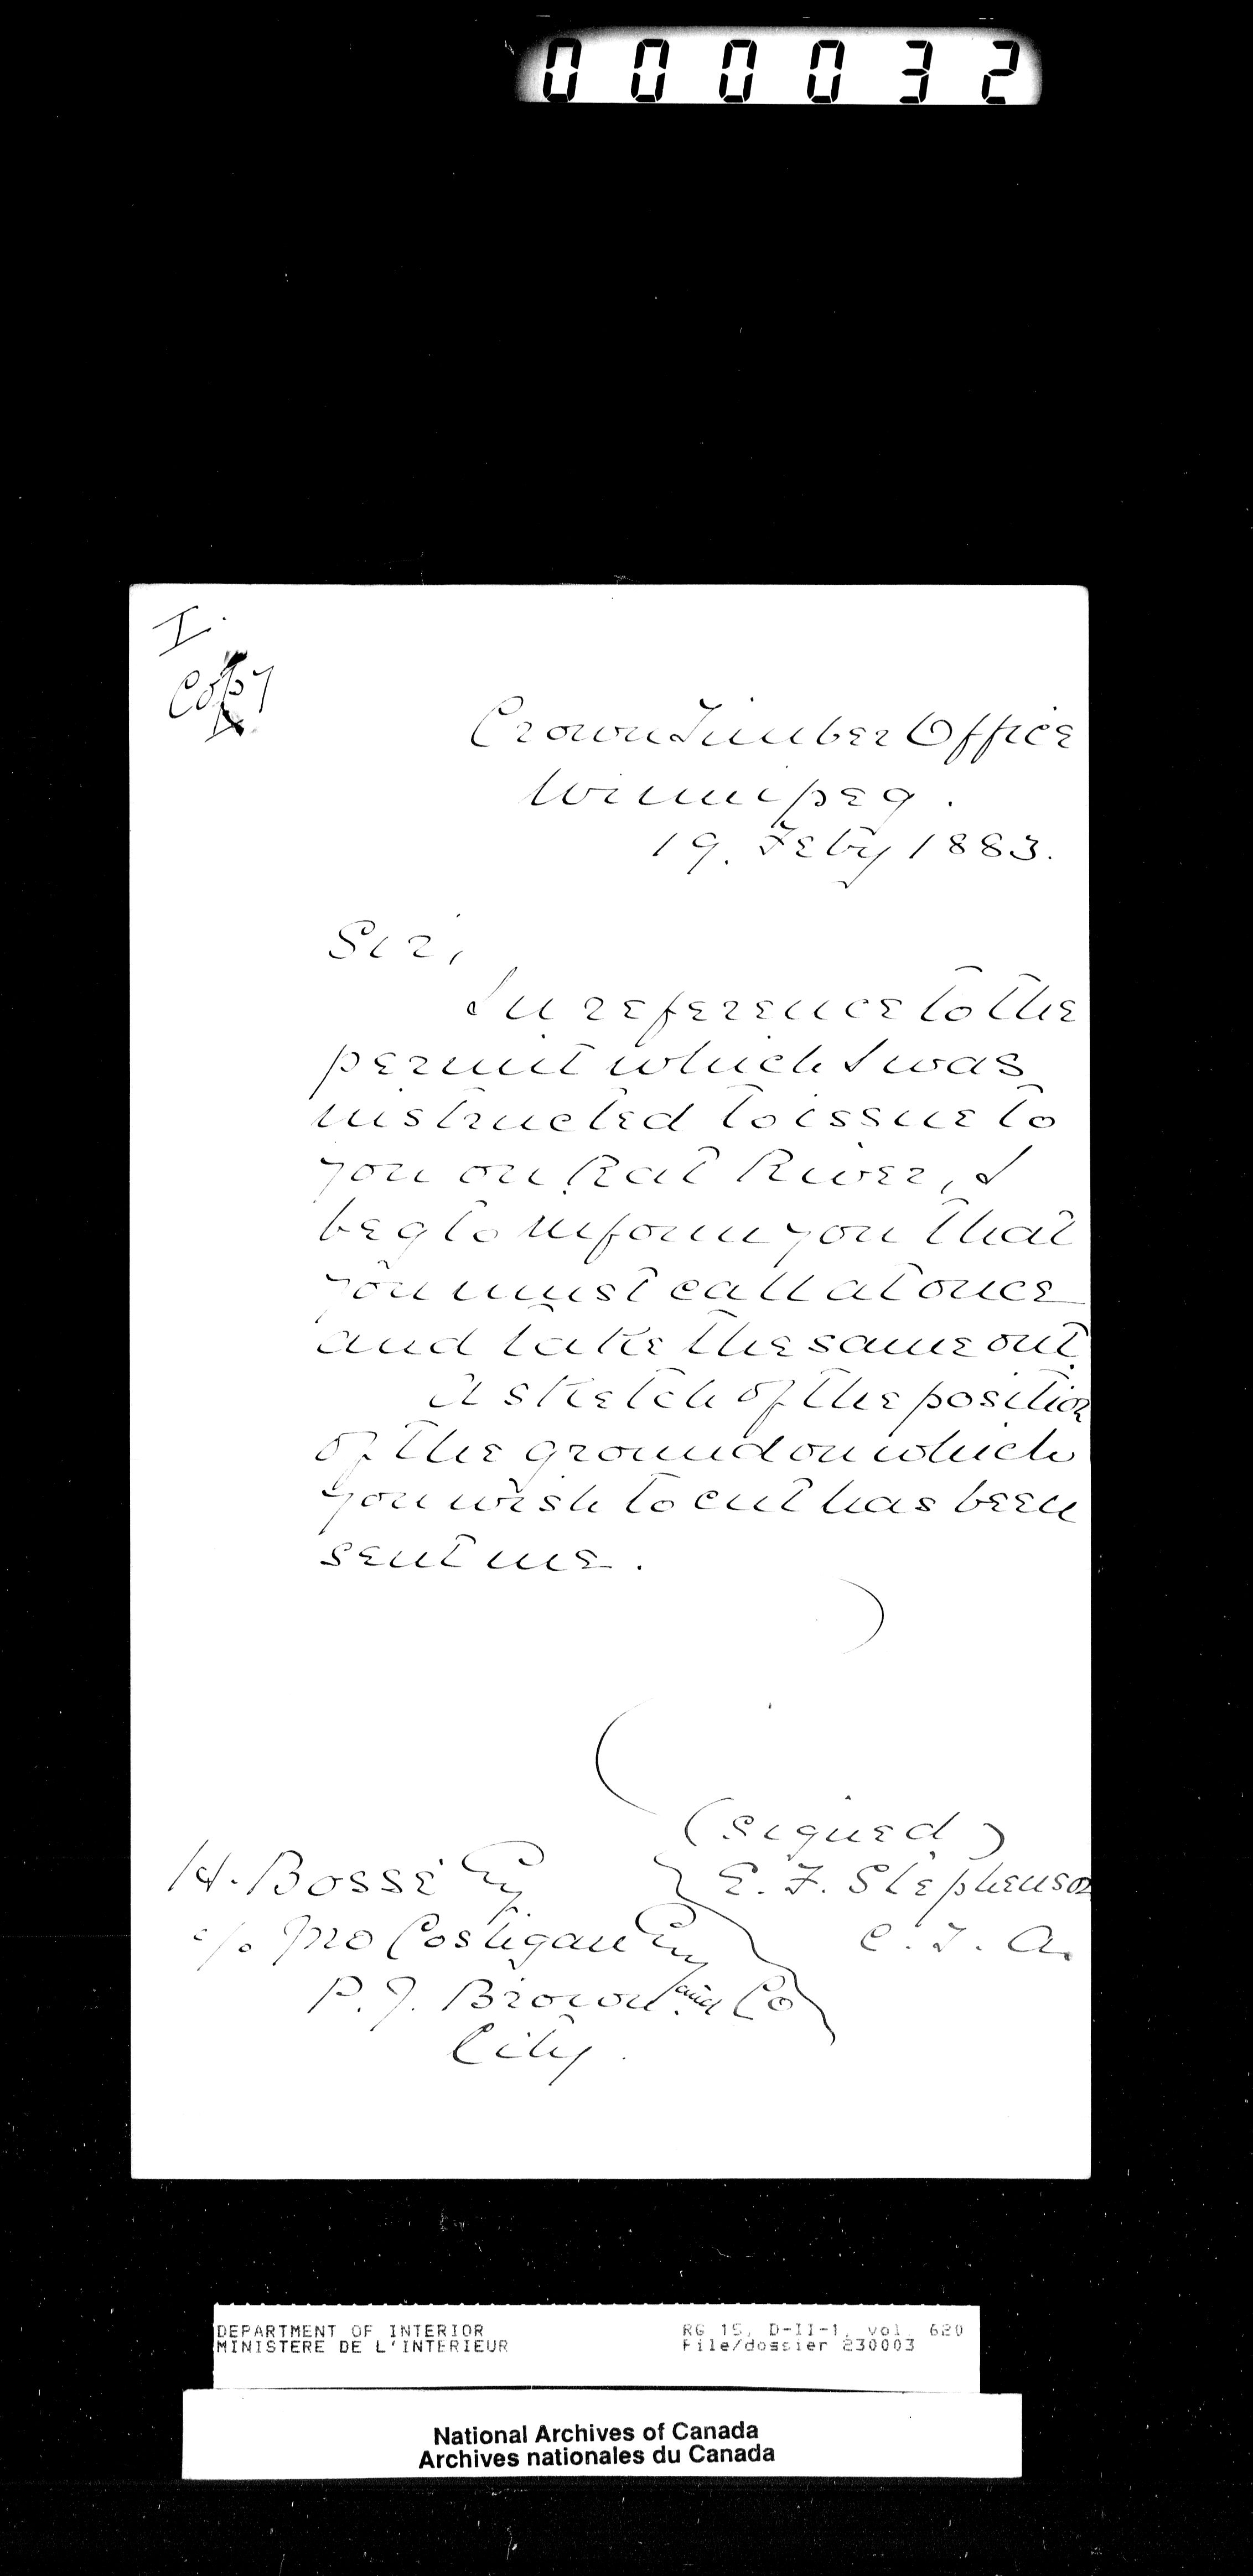 000032
I.
Copy
Crown Timber Office
Winnipeg.
19. Feby 1883.
Sir,
In reference to the
permit which I was
instructed to issue to
you on Rat River, I
beg to inform you that
you must call at once
and take the same out.
A sketch of the position
of the ground on which
you wish to cut has been
sent me.
(signed)
E. F. Stephenson
C. T. A.
H. Bossé Esq.
c/o Jno Costigan Esq
P. J. Brown and Co
City.
DEPARTMENT OF INTERIOR RG 15, D-II-1, vol. 620
MINISTERE DE L'INTERIEUR File/dossier 230003
National Archives of Canada
Archives nationales du Canada